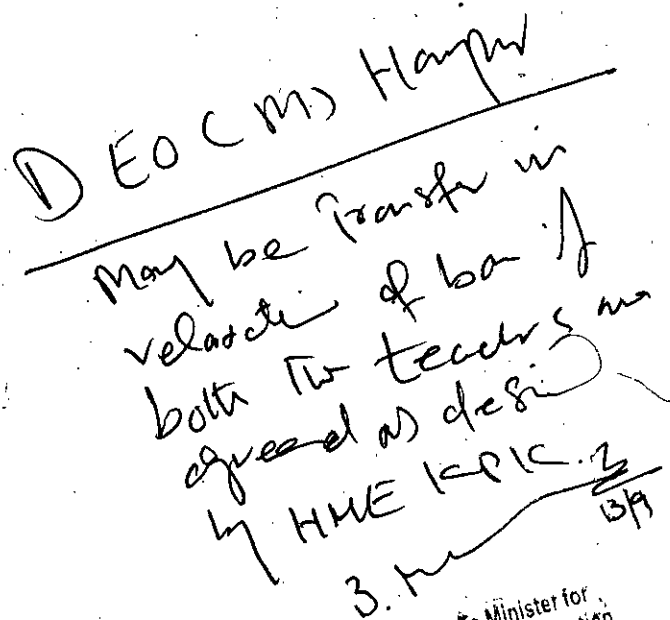 DEO (M) Haripur
May be Transfer in
relaxation of ban if
both the teachers are
agreed as desire
by HME KPK.
13/9
Minister for